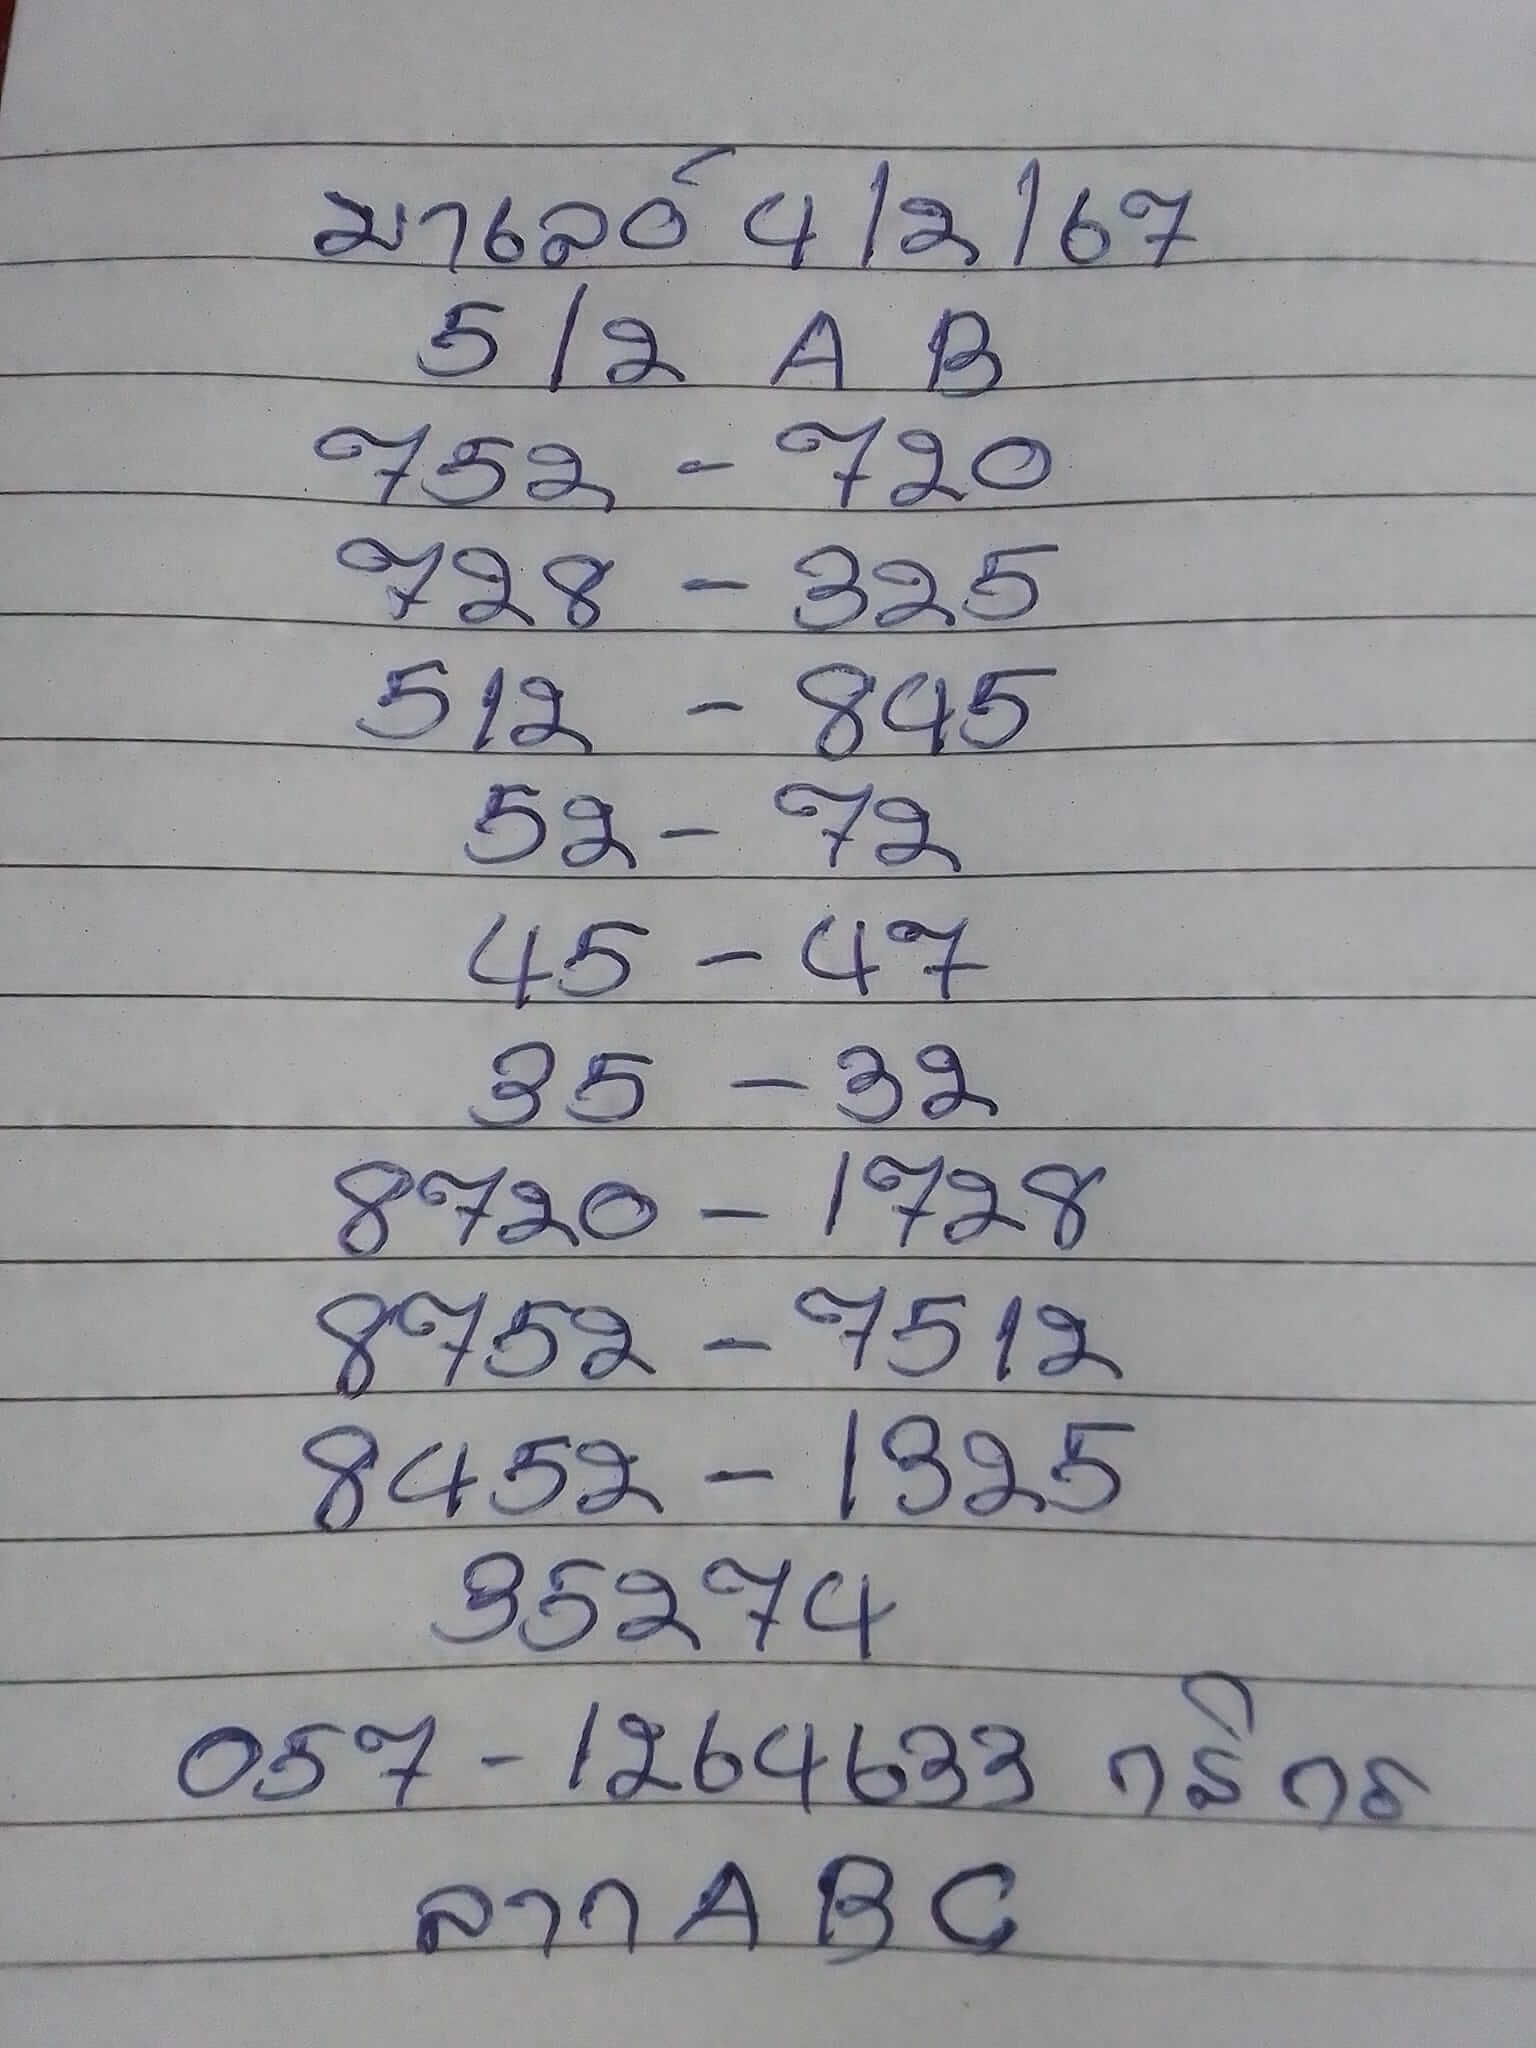 มาเลย์ 4/2/67
5/2 A B
752 - 720
728 - 325
512 - 845
52 - 72
45 - 47
35 - 32
8720 - 1728
8752 - 7512
8452 - 1325
35274
057-1264633 กสิกร
ลาก A B C